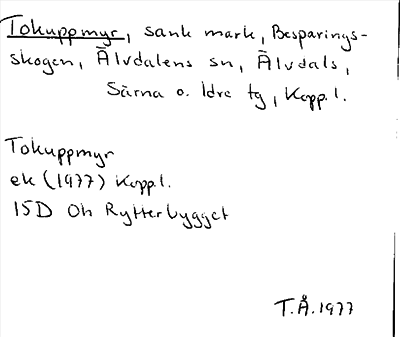 Tokuppmyr, sank mark, Besparings-
skogen, Älvdalens sn, Älvdals,
Särna o. Idre tg, Kopp.l.
Tokuppmyr
ek (1977) Kopp.l.
15D 0h Rytterbygget
T.Å.1977